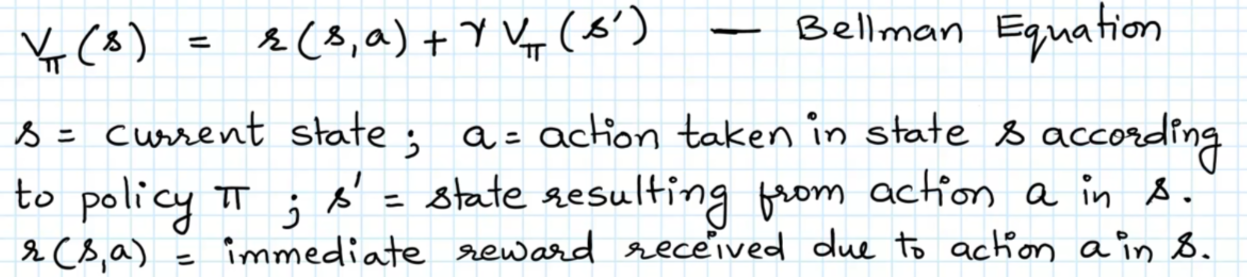 V_π(s) = r(s,a) + γ V_π(s') — Bellman Equation
s = current state ; a = action taken in state s according
to policy π ; s' = state resulting from action a in s.
r(s,a) = immediate reward received due to action a in s.